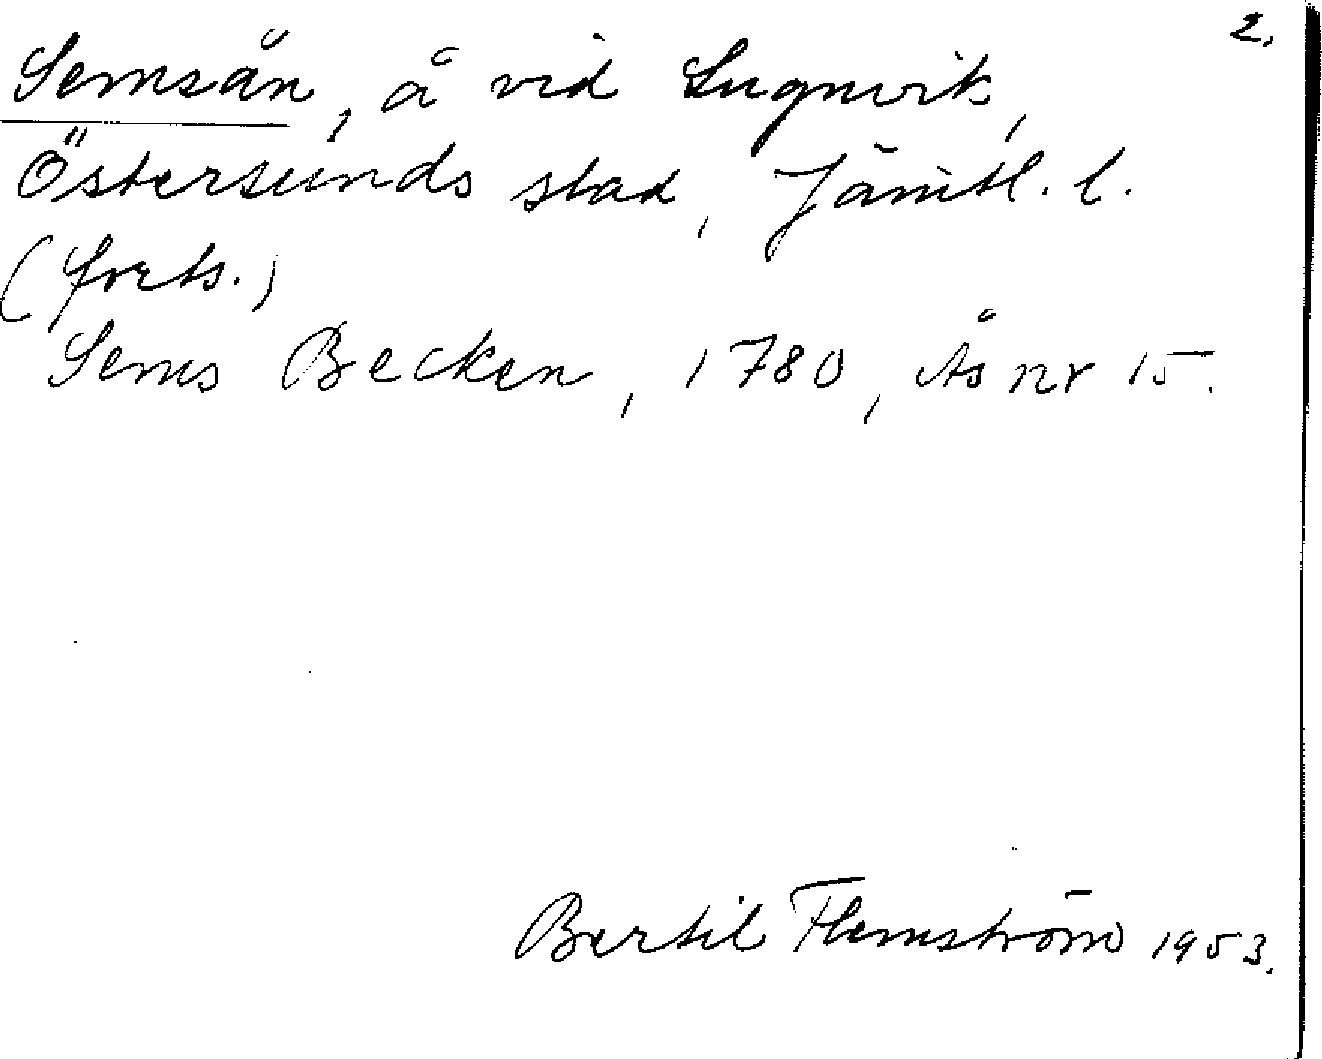 2.
Semsån, å vid Lugnvik,
Östersunds stad, Jämtl. l.
(forts.)
Sems Becken, 1780, Ås nr 15.
Bertil Flemström 1953.